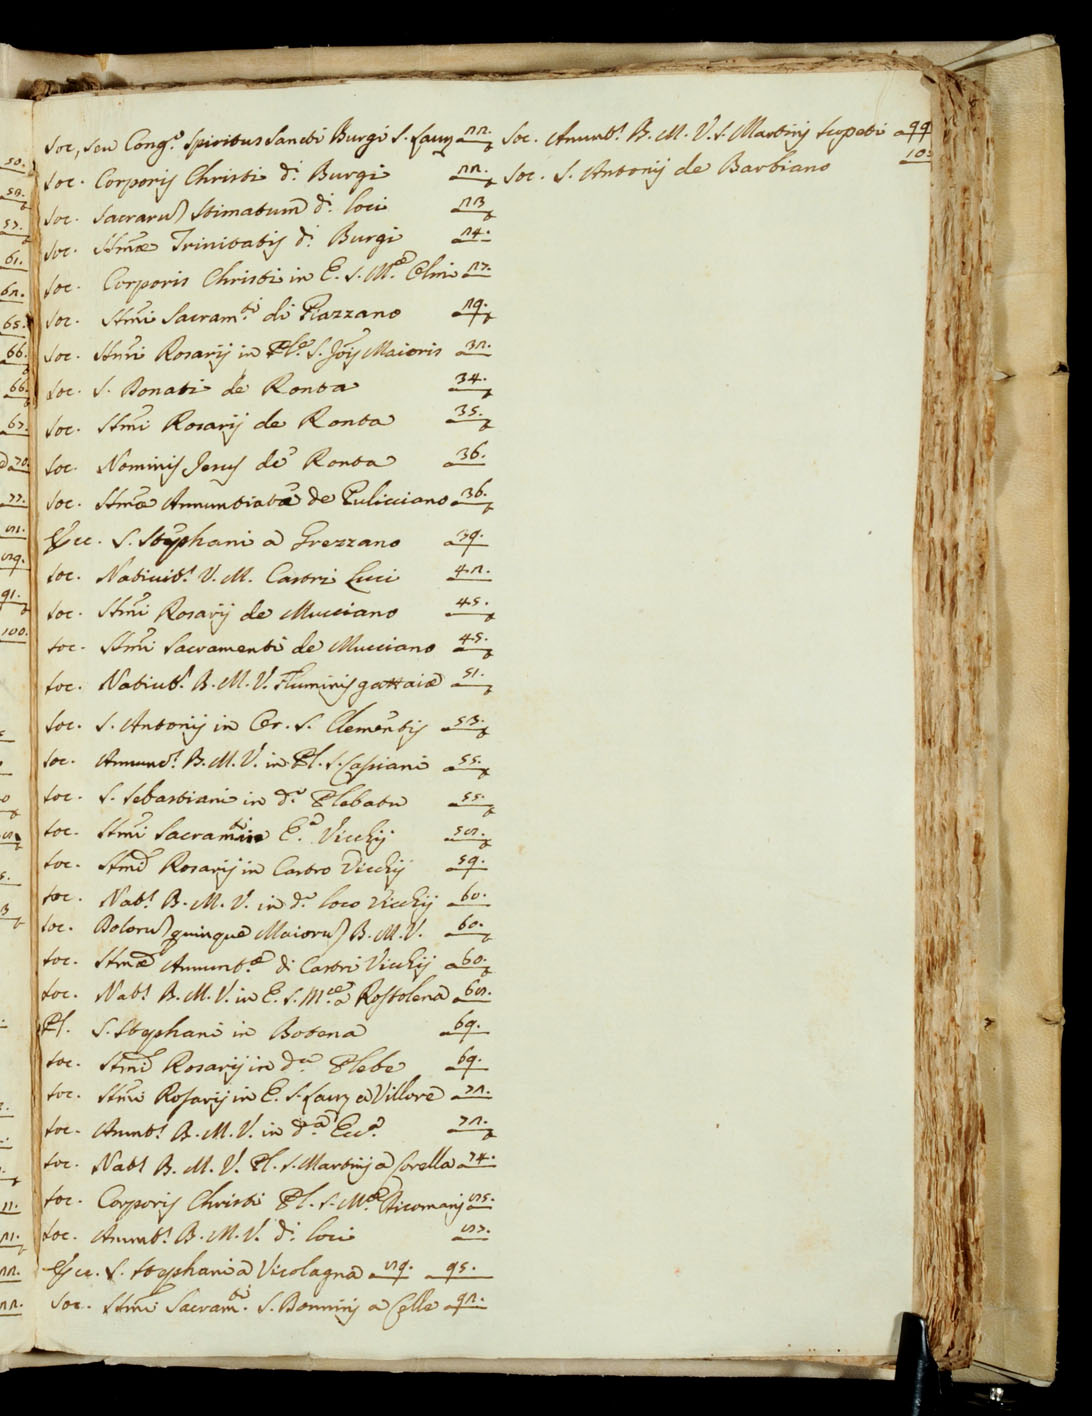 Soc, seu Cong.e Spiritus Sancti Burgi S. Laur. 22.
Soc. Corporis Christi d.i Burgi 22.
Soc. Sacraru) Stimatum d.i loci 23
Soc. SSmæ Trinitatis d.i Burgi 24.
Soc. Corporis Christi in E. S. M.æ Olmi 27.
Soc. SSmi Sacram.ti di Piazzano 29.
Soc. SSmi Rosarij in Pl.e S. Jõis Maioris 32.
Soc. S. Donati de Ronta 34.
Soc. SSmi Rosarij de Ronta 35.
Soc. Nominis Jesus de Ronta 36.
Soc. SSmæ Annuntiatæ de Pulicciano 36.
S. Stephani a Grezzano 39.
Soc. Nativit.s V. M. Castri Luci 42.
Soc. SSmi Rosarij de Mucciano 45.
Soc. SSmi Sacramenti de Mucciano 45.
Soc. Nativit.s B. M. V. Fluminis gattaiæ 51.
Soc. S. Antonij in Or. S. Clementis 53.
Soc. Annunt.s B. M. V. in Pl. S. Cassiani 55.
Soc. S. Sebastiani in d.o Plebatu 55.
Soc. SSmi Sacram.ti in E.a Vicchij 58.
Soc. SSmi Rosarij in Castro Vicchij 59.
Soc. Nat.s B. M. V. in d.o loco Vicchij 60.
Soc. Doloru) quinque Maioru) B. M. V. 60.
Soc. SSmæ Annunt.æ di Castri Vicchij 60.
Soc. Nat.s B. M. V. in E. S. M.æ a Rostolena 68.
Pl. S. Stephani in Botena 69.
Soc. SSmi Rosarij in d.a Plebe 69.
Soc. SSmi Rosarij in E. S. Laur. a Villore 72.
Soc. Annt.s B. M. V. in d.a Ecc.a 72.
Soc. Nat.s B. M. V. Pl. S. Martini a Corella 74.
Soc. Corporis Christi Pl. S. M.æ Dicomanij 85.
Soc. Annt.s B. M. V. d.i loci 87.
S. Stephani a Vicolagna 89. 95.
Soc. SSmi Sacram.ti S. Bonninij a Celle 92.
Soc. Annunt.s B. M. V. S. Martinij Scopeti 99
Soc. S. Antonij de Barbiano
50.
57.
61.
62.
65.
66.
66.
67.
70.
77.
81.
89.
91.
100.